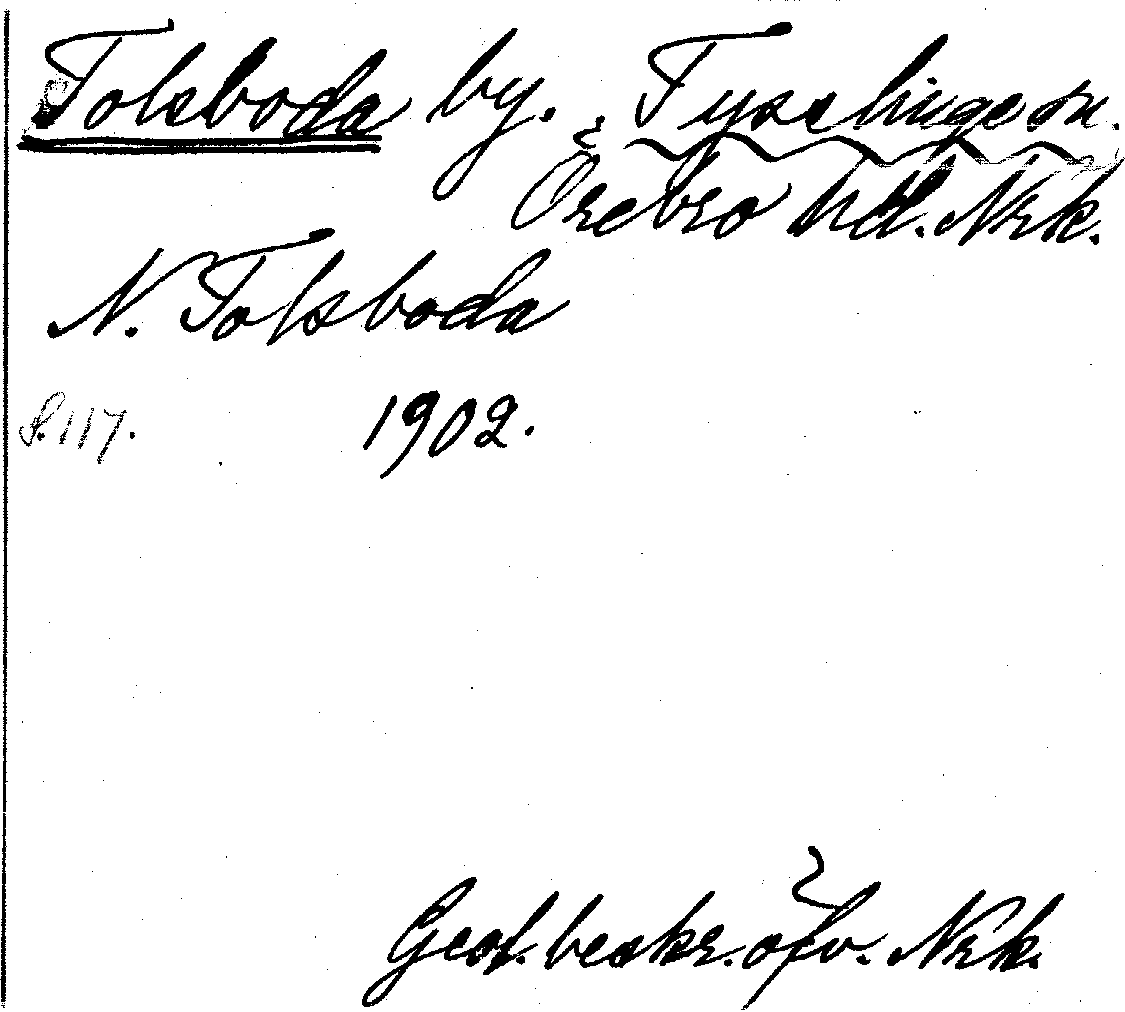 Tolsboda by. Tysslinge sn.
Örebro hd. Nrk.
N. Tolsboda
S. 117. 1902.
Geol. beskr. öfv. Nrk.